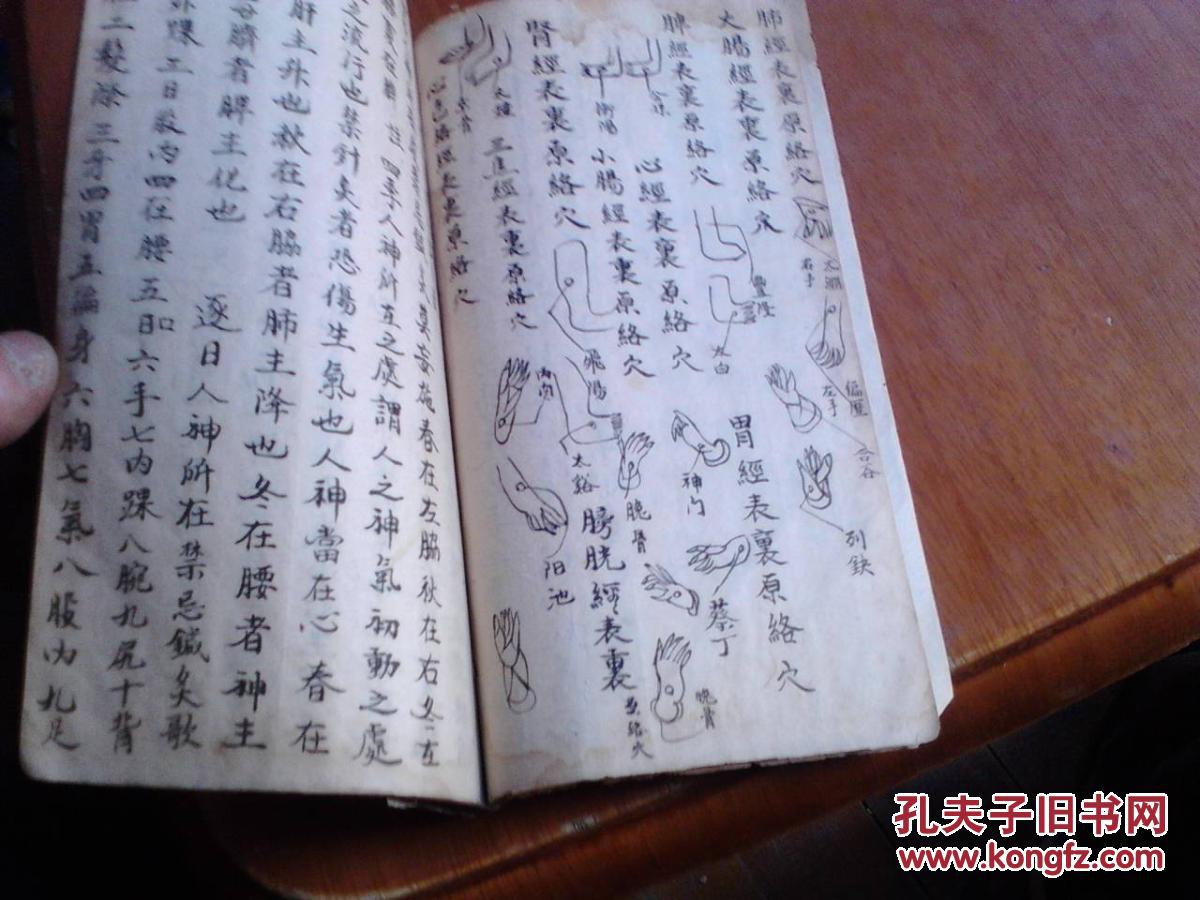 肺經表裏原絡穴
太淵
右手
偏歷
左手
合谷
列鈌
大腸經表裏原絡穴
豐隆
太白
胃經表裏原絡穴
脾經表裏原絡穴
神門
蔡丁
腕骨
心經表裏原絡穴
衝陽
小腸經表裏原絡穴
腕骨
膀胱經表裏
原絡穴
腎經表裏原絡穴
飛陽
太谿
三焦經表裏原絡穴
內関
阳池
京骨
心包絡經表裏原絡穴
春在左脇秋在右冬在
四季人神所在之處謂人之神氣初動之處
之流行也禁針灸者恐傷生氣也人神當在心春在
肝主升也秋在右脇者肺主降也冬在腰者神主
臍者脾主化也
逐日人神所在禁忌鍼灸歌
外踝二日
四在腰五日口六手七內踝八腕九尻十背
二髮際三牙四胃五遍身六胸七氣八股內九足
孔夫子旧书网
www.kongfz.com